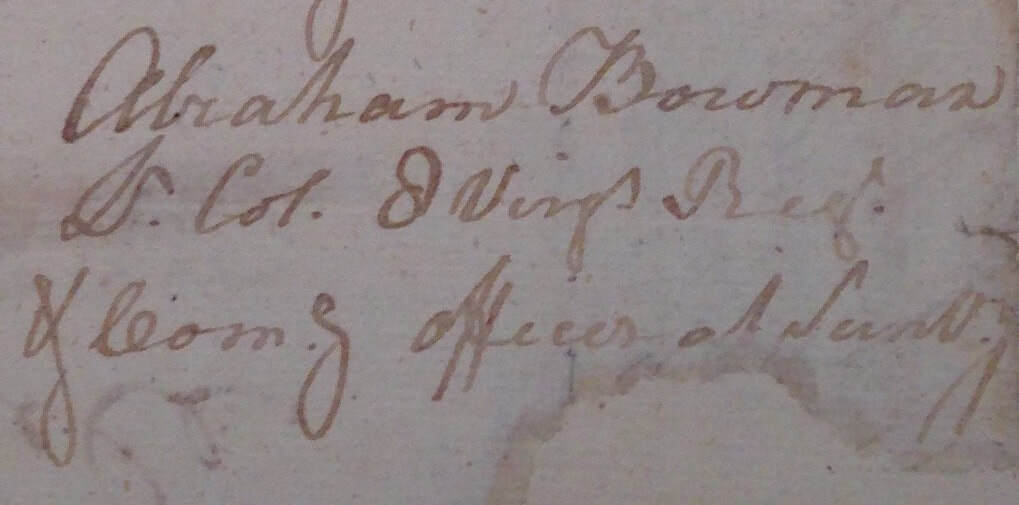 Abraham Bowman
Lt. Col. 8 Virga Regt.
& Comg officer at Sunby